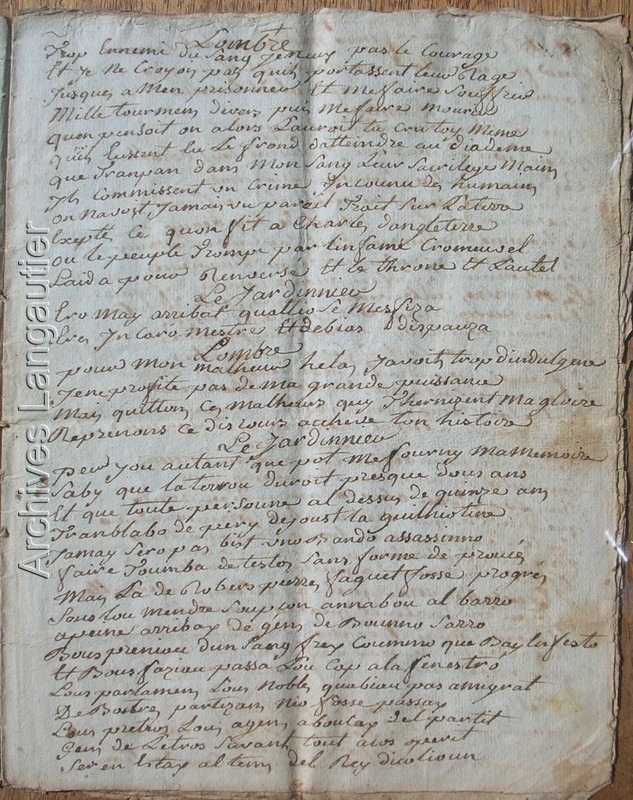 Lombre
Trop Ennemi du Sang Jeneux pas le Courage
Et Je Ne Croyon pas quils portassent leur Rage
Jusques a Men prisonner Et Me faire Souffrir
Mille tourmens divers puis Me faire Mourir
quen pensoit on alors Lauroit tu cru toy Meme
quils Eussent Eu Le frond datteindre au diademe
que Tranpan dans Mon Sang Leur Sacrilege Main
Ils Commissent un Crime Inconnu des humains
On Navoit Jamais vu pareil Trait Sur La terre
Excepte Ce quon fit a Charle dangleterre
Ou le peuple Trompe par linfame Cromeuvel
Laida pour Renverse Et le Throne Et Lautel
Le Jardinnieu
Ero May arribat quallio Se Mesfiza
Eres In caro mestre Et debias dispauza
Lombre
pour Mon Malheur helas Javois trop dindulgene
Jene profite pas de ma grande puissance
Mais quittons Ces Malheurs quy Thernizent Ma gloire
Reprenons Ce discours acheve ton histoire
Le Jardinnieu
per you autant que pot Me fourny Ma Memoire
Saby que la terrou duroit presque dous ans
Et que toute persoune al dessus de quinze ans
Tranblabo de pery dejoust la guilhiotine
Jamay Sero pas bist uno Bando assassinno
faire Toumba de testos Sans forme de proces
Mais La de Robers pierre faguet fosse progres
Sous lou Mendre Soupçon annabou al barro
apeine arribax de gens de Bounno Sarro
Bous preneou dun Sang frex Coummo que Bay la festo
Et Bous faziou passa Lou Cap a la fenestro
Lous parlamens Lous Nobles quabiau pas amigrat
De Boutre partizans Nio fosse passax
Lous pretros Lous agens aboucax del partit
Gens de Letros Savant tout aco
Ser en Estax al tems del Rey
Archives Langautier